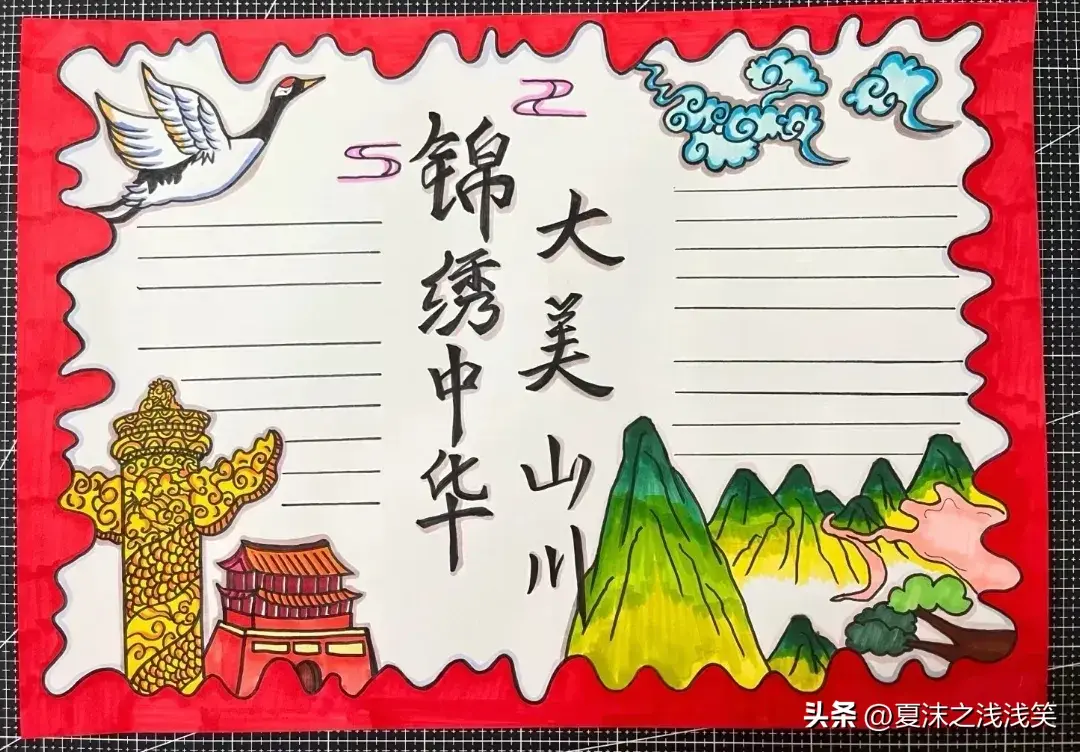 锦绣中华
大美山川
头条 @夏沫之浅浅笑